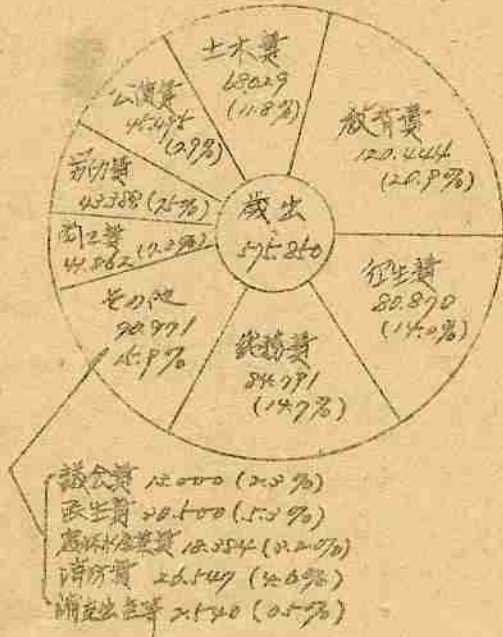 歳出
575.850
土木費
68029
(11.8%)
教育費
120.444
(20.9%)
80.870
(14.0%)
総務費
84.791
(14.7%)
その他
90.971
15.8%
商工費
労働費
43.388 (7.5%)
公債費
45.495
(7.9%)
議会費 13.000 (2.3%)
30.500 (5.3%)
農林水産業費 18.384 (3.2%)
消防費 26.547 (4.6%)
2.540 (0.5%)